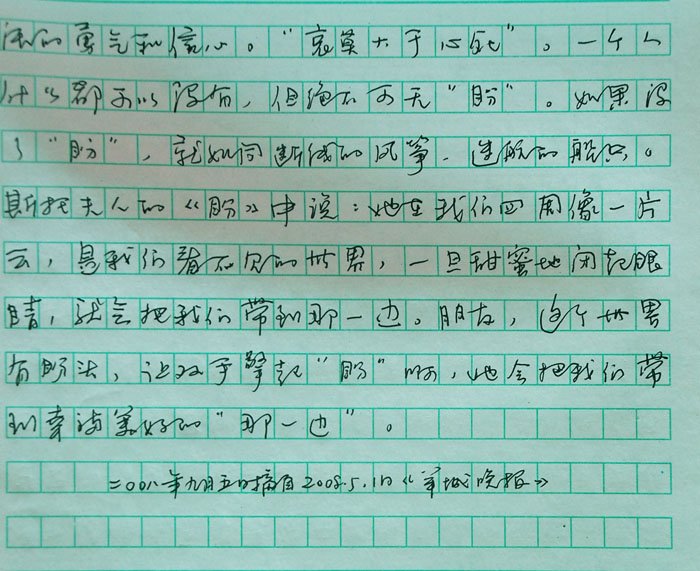 活的勇气和信心。“哀莫大于心死”。一个人
什么都可以没有，但绝不可无“盼”。如果没
了“盼”，就如同断线的风筝、迷航的船只。
斯托夫人的《盼》中说：她在我们四周像一片
云，是我们看不见的世界，一旦甜蜜地闭起眼
睛，就会把我们带到那一边。朋友，这个世界
有盼头，让双手擎起“盼”吧，她会把我们带
到幸福美好的“那一边”。
二〇〇八年九月五日摘自2008.5.1日《羊城晚报》